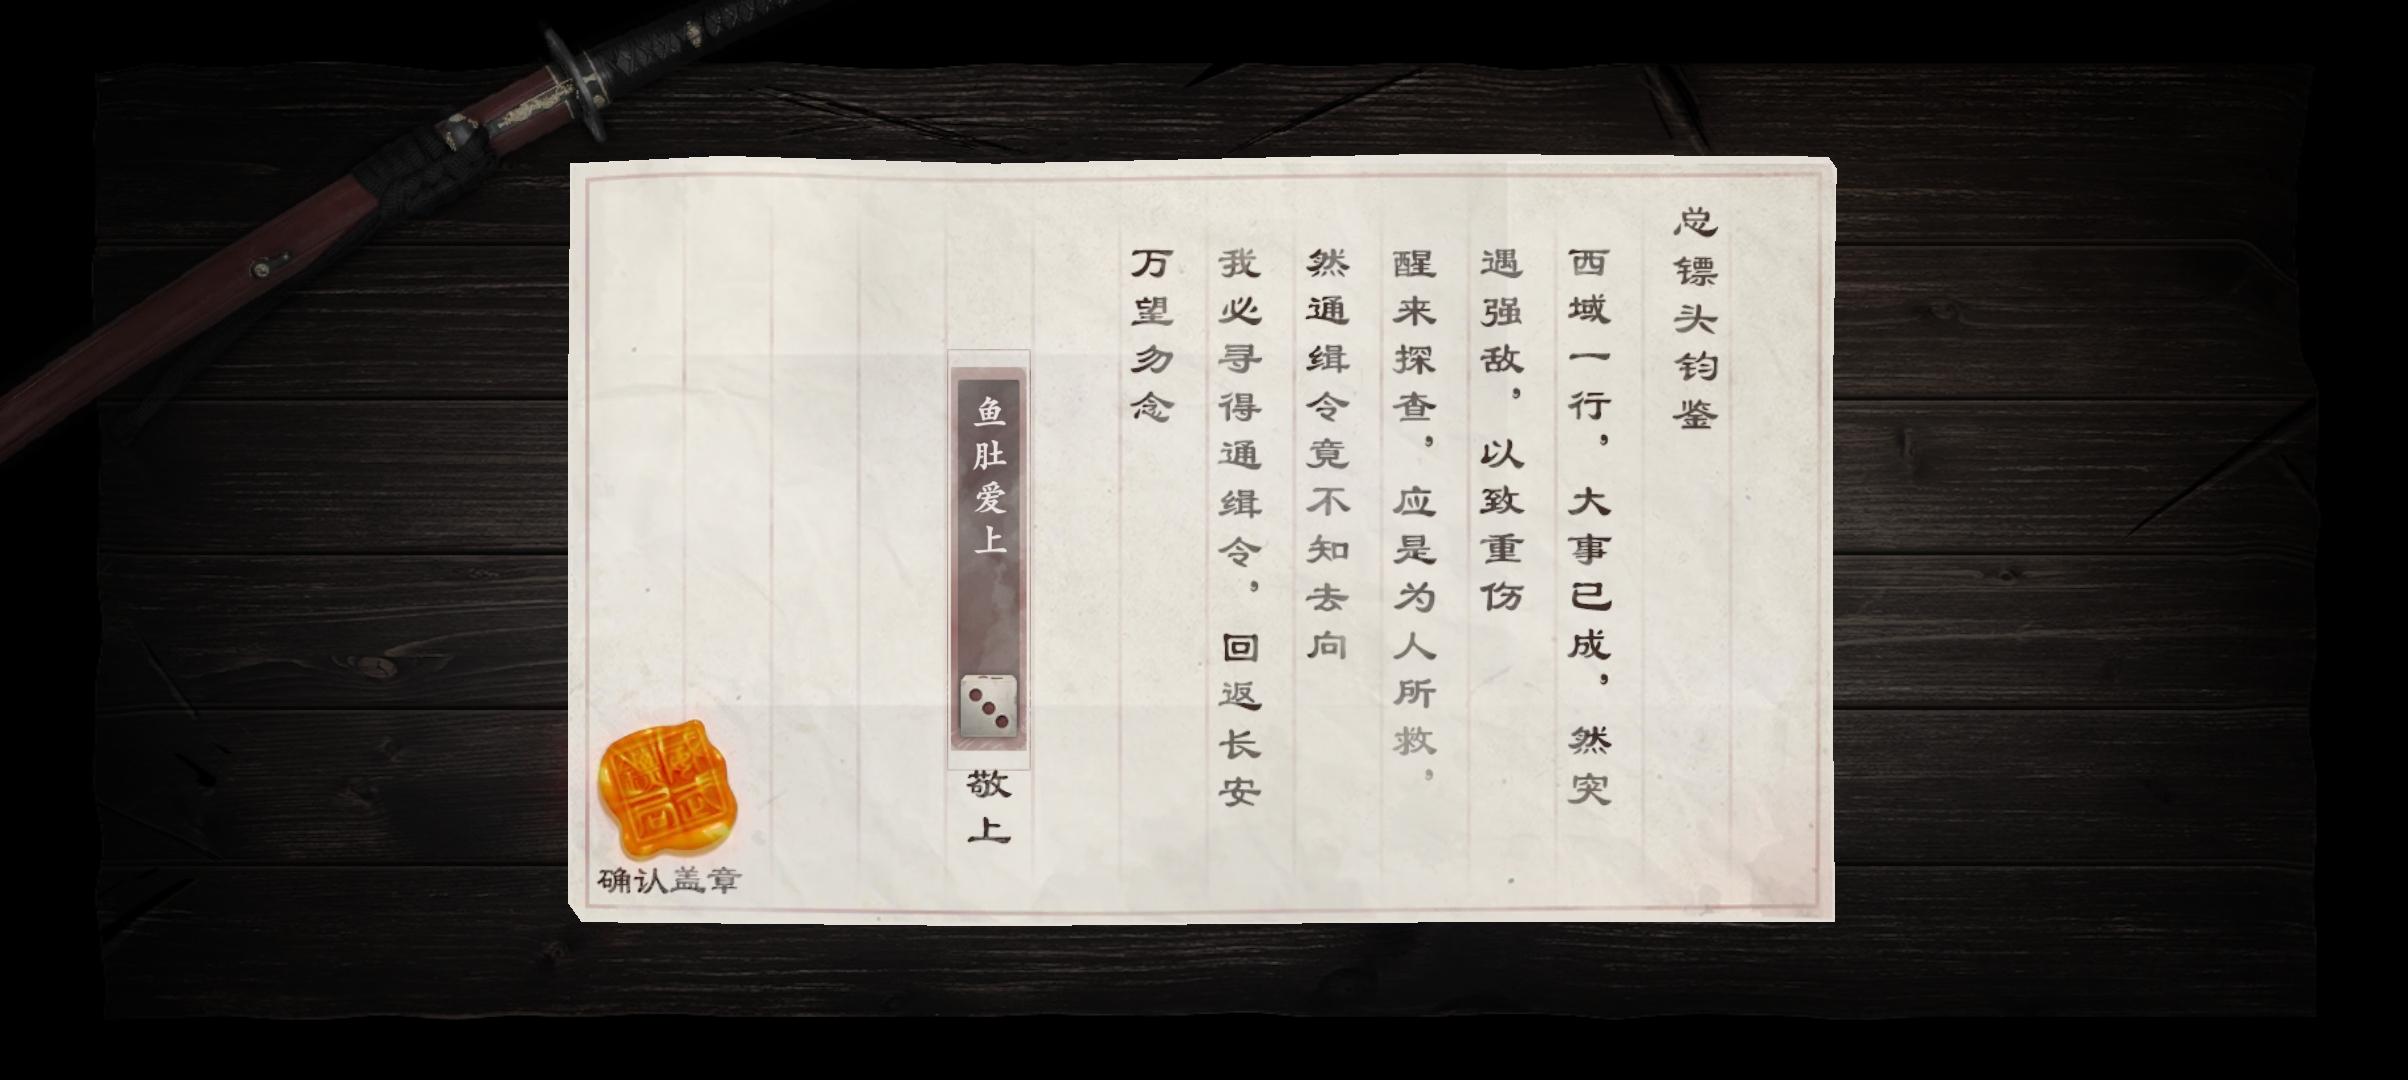 总镖头钧鉴
西域一行，大事已成，然突
遇强敌，以致重伤
醒来探查，应是为人所救，
然通缉令竟不知去向
我必寻得通缉令，回返长安
万望勿念
鱼肚爱上
敬上
确认盖章